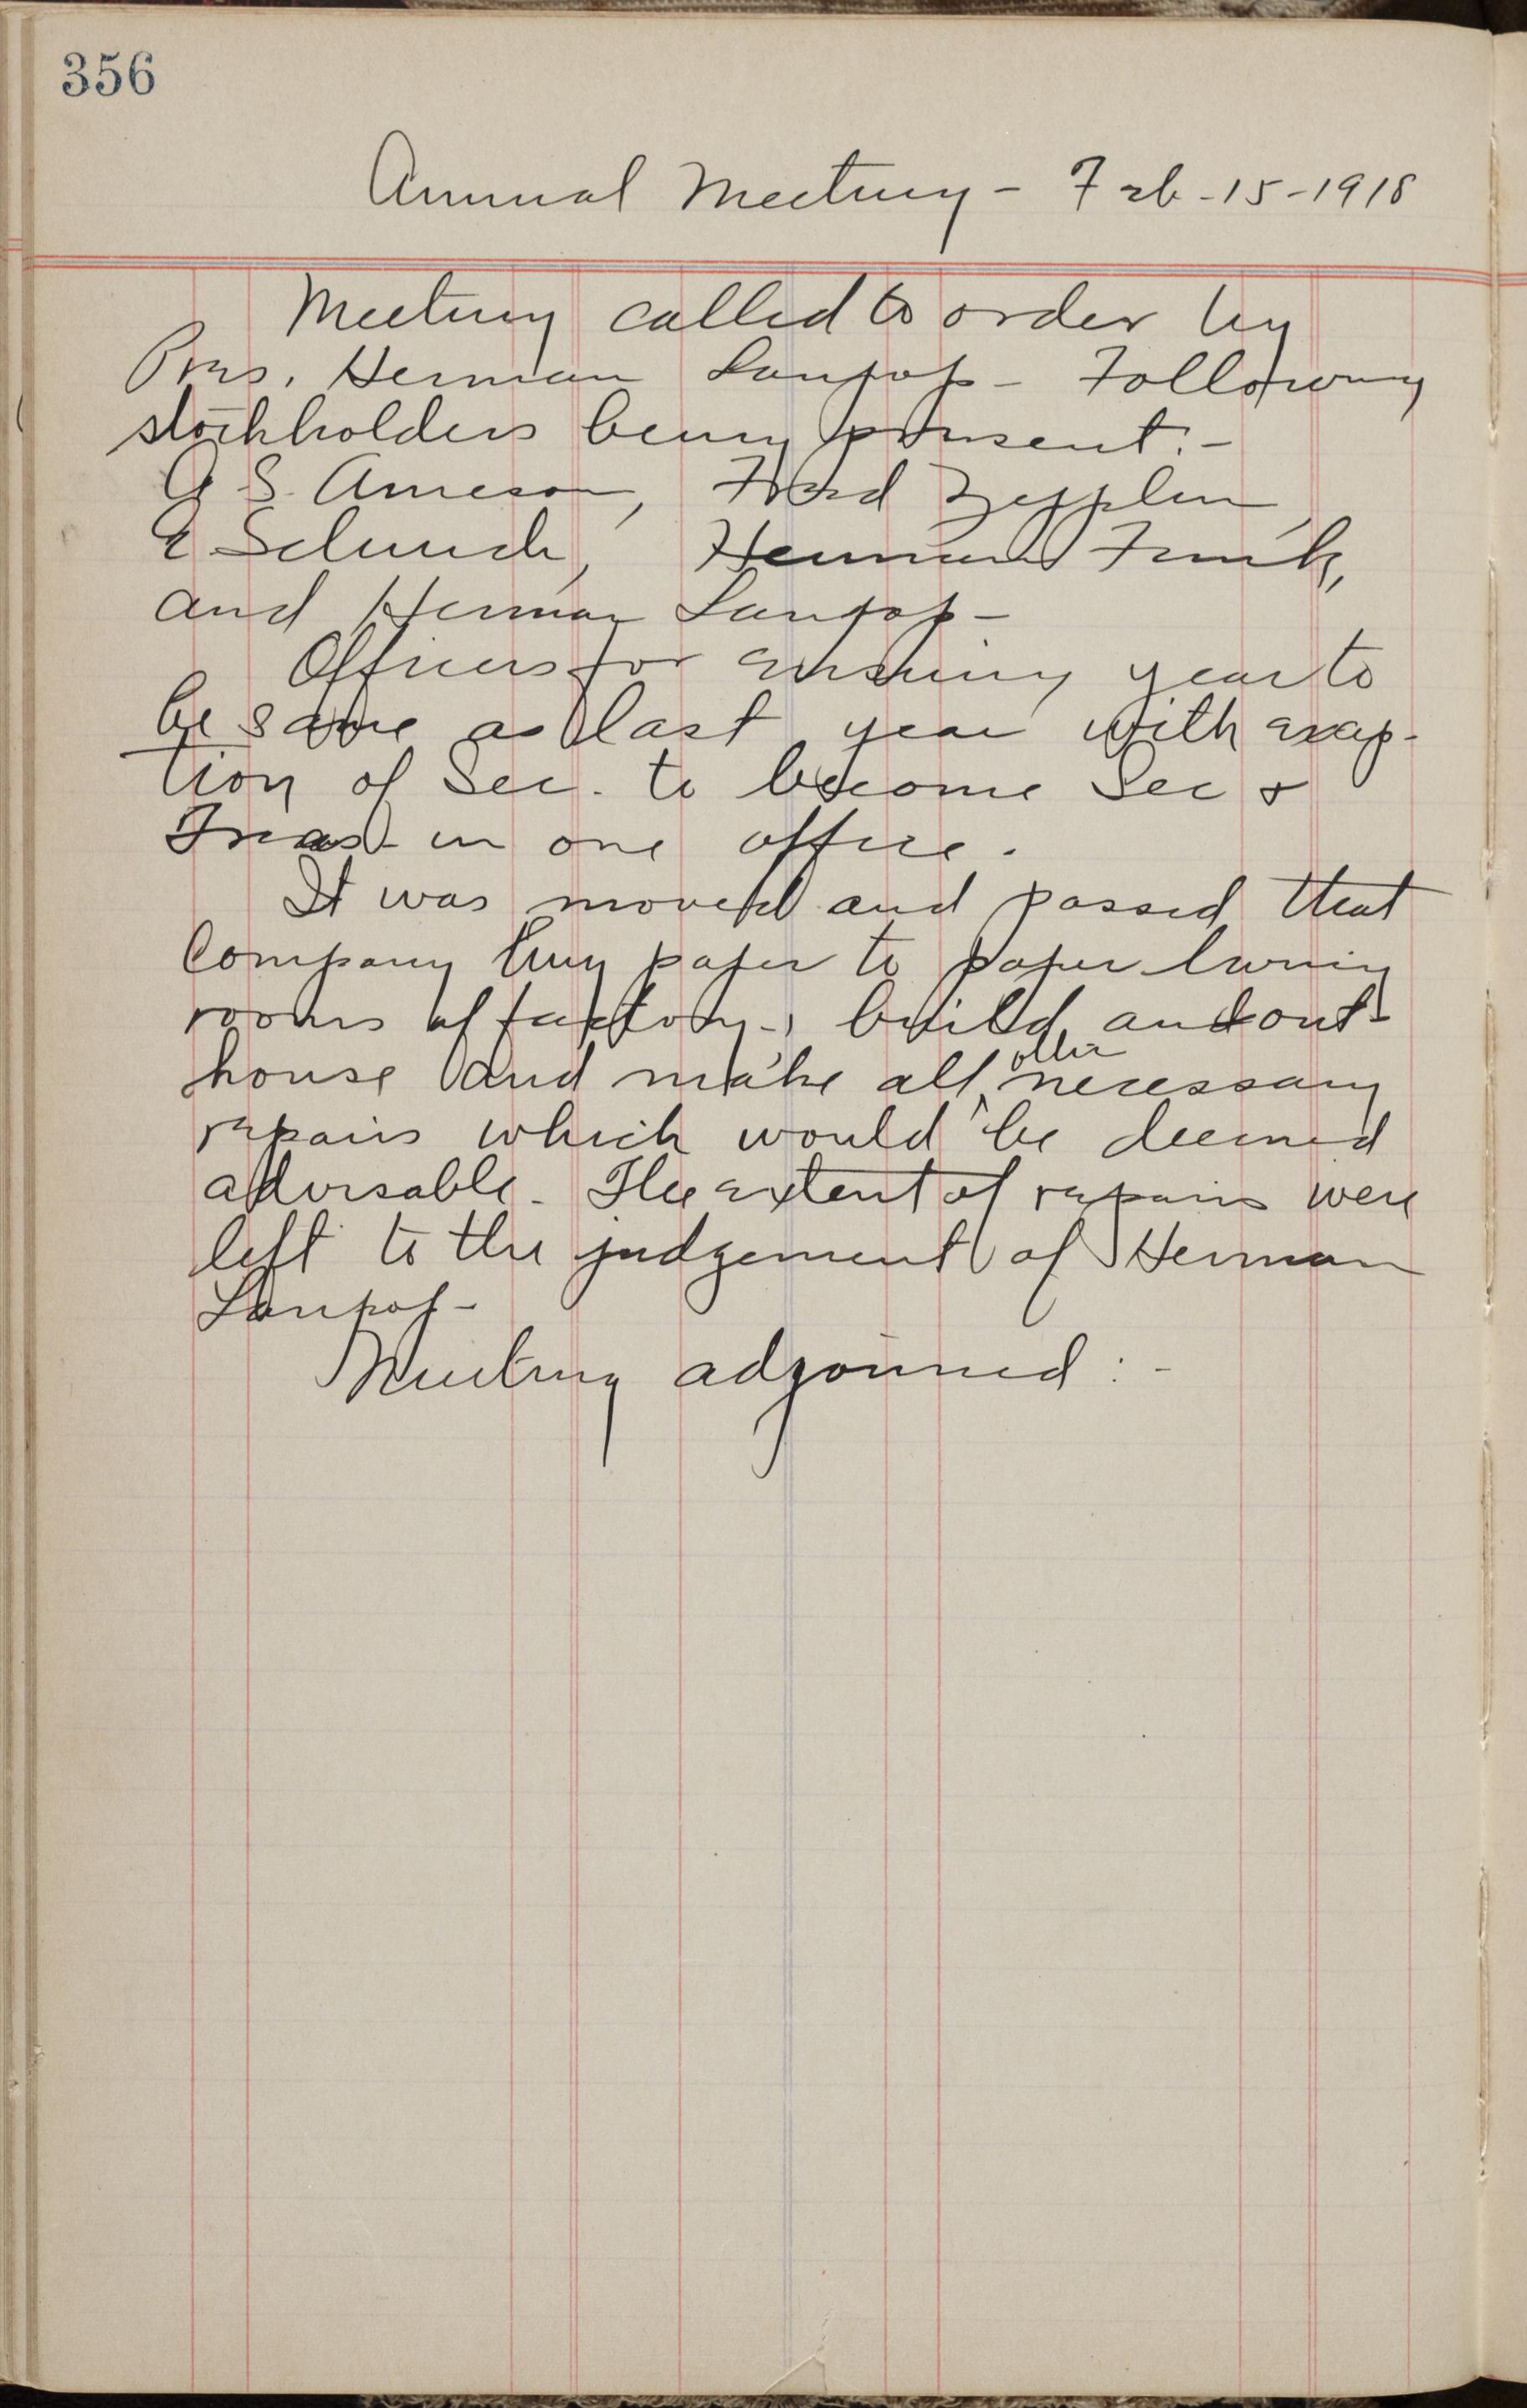 356
Annual Meeting - Feb - 15 - 1918
Meeting called to order by
Pres. Herman Lanpop - Following
stockholders being present: -
G S. Arneson, Fred Zepplin,
E Schmidt, Herman Funk,
and Herman Lanpop -
Officers for ensuing year to
be same as last year with excep-
tion of Sec. to become Sec &
Treas - in one office.
It was moved and passed that
Company buy paper to paper living
rooms of factory -, build an out-
house and make all other necessary
repairs which would be deemed
advisable. The extent of repairs were
left to the judgement of Herman
Lanpop -
Meeting adjourned : -